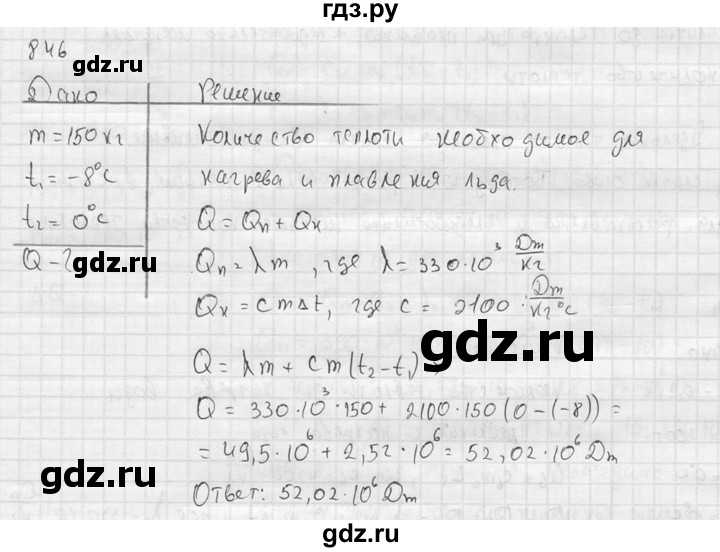 гдз.ру
846
gdz.ru
Дано
Решение
m = 150 кг
t₁ = -8°C
t₂ = 0°C
Q - ?
Количество теплоти необходимое для
нагрева и плавления льда.
Q = Qп + Qн
Qп = λm, где λ = 330·10³ Дm/кг
Qн = cmΔt, где c = 2100 · Дm/кг°C
gdz.ru
Q = λm + cm(t₂ - t₁)
Q = 330·10³·150 + 2100·150(0-(-8)) =
= 49,5·10⁶ + 2,52·10⁶ = 52,02·10⁶ Дm
gdz.ru
gdz.ru
Ответ: 52,02·10⁶ Дm
gdz.ru